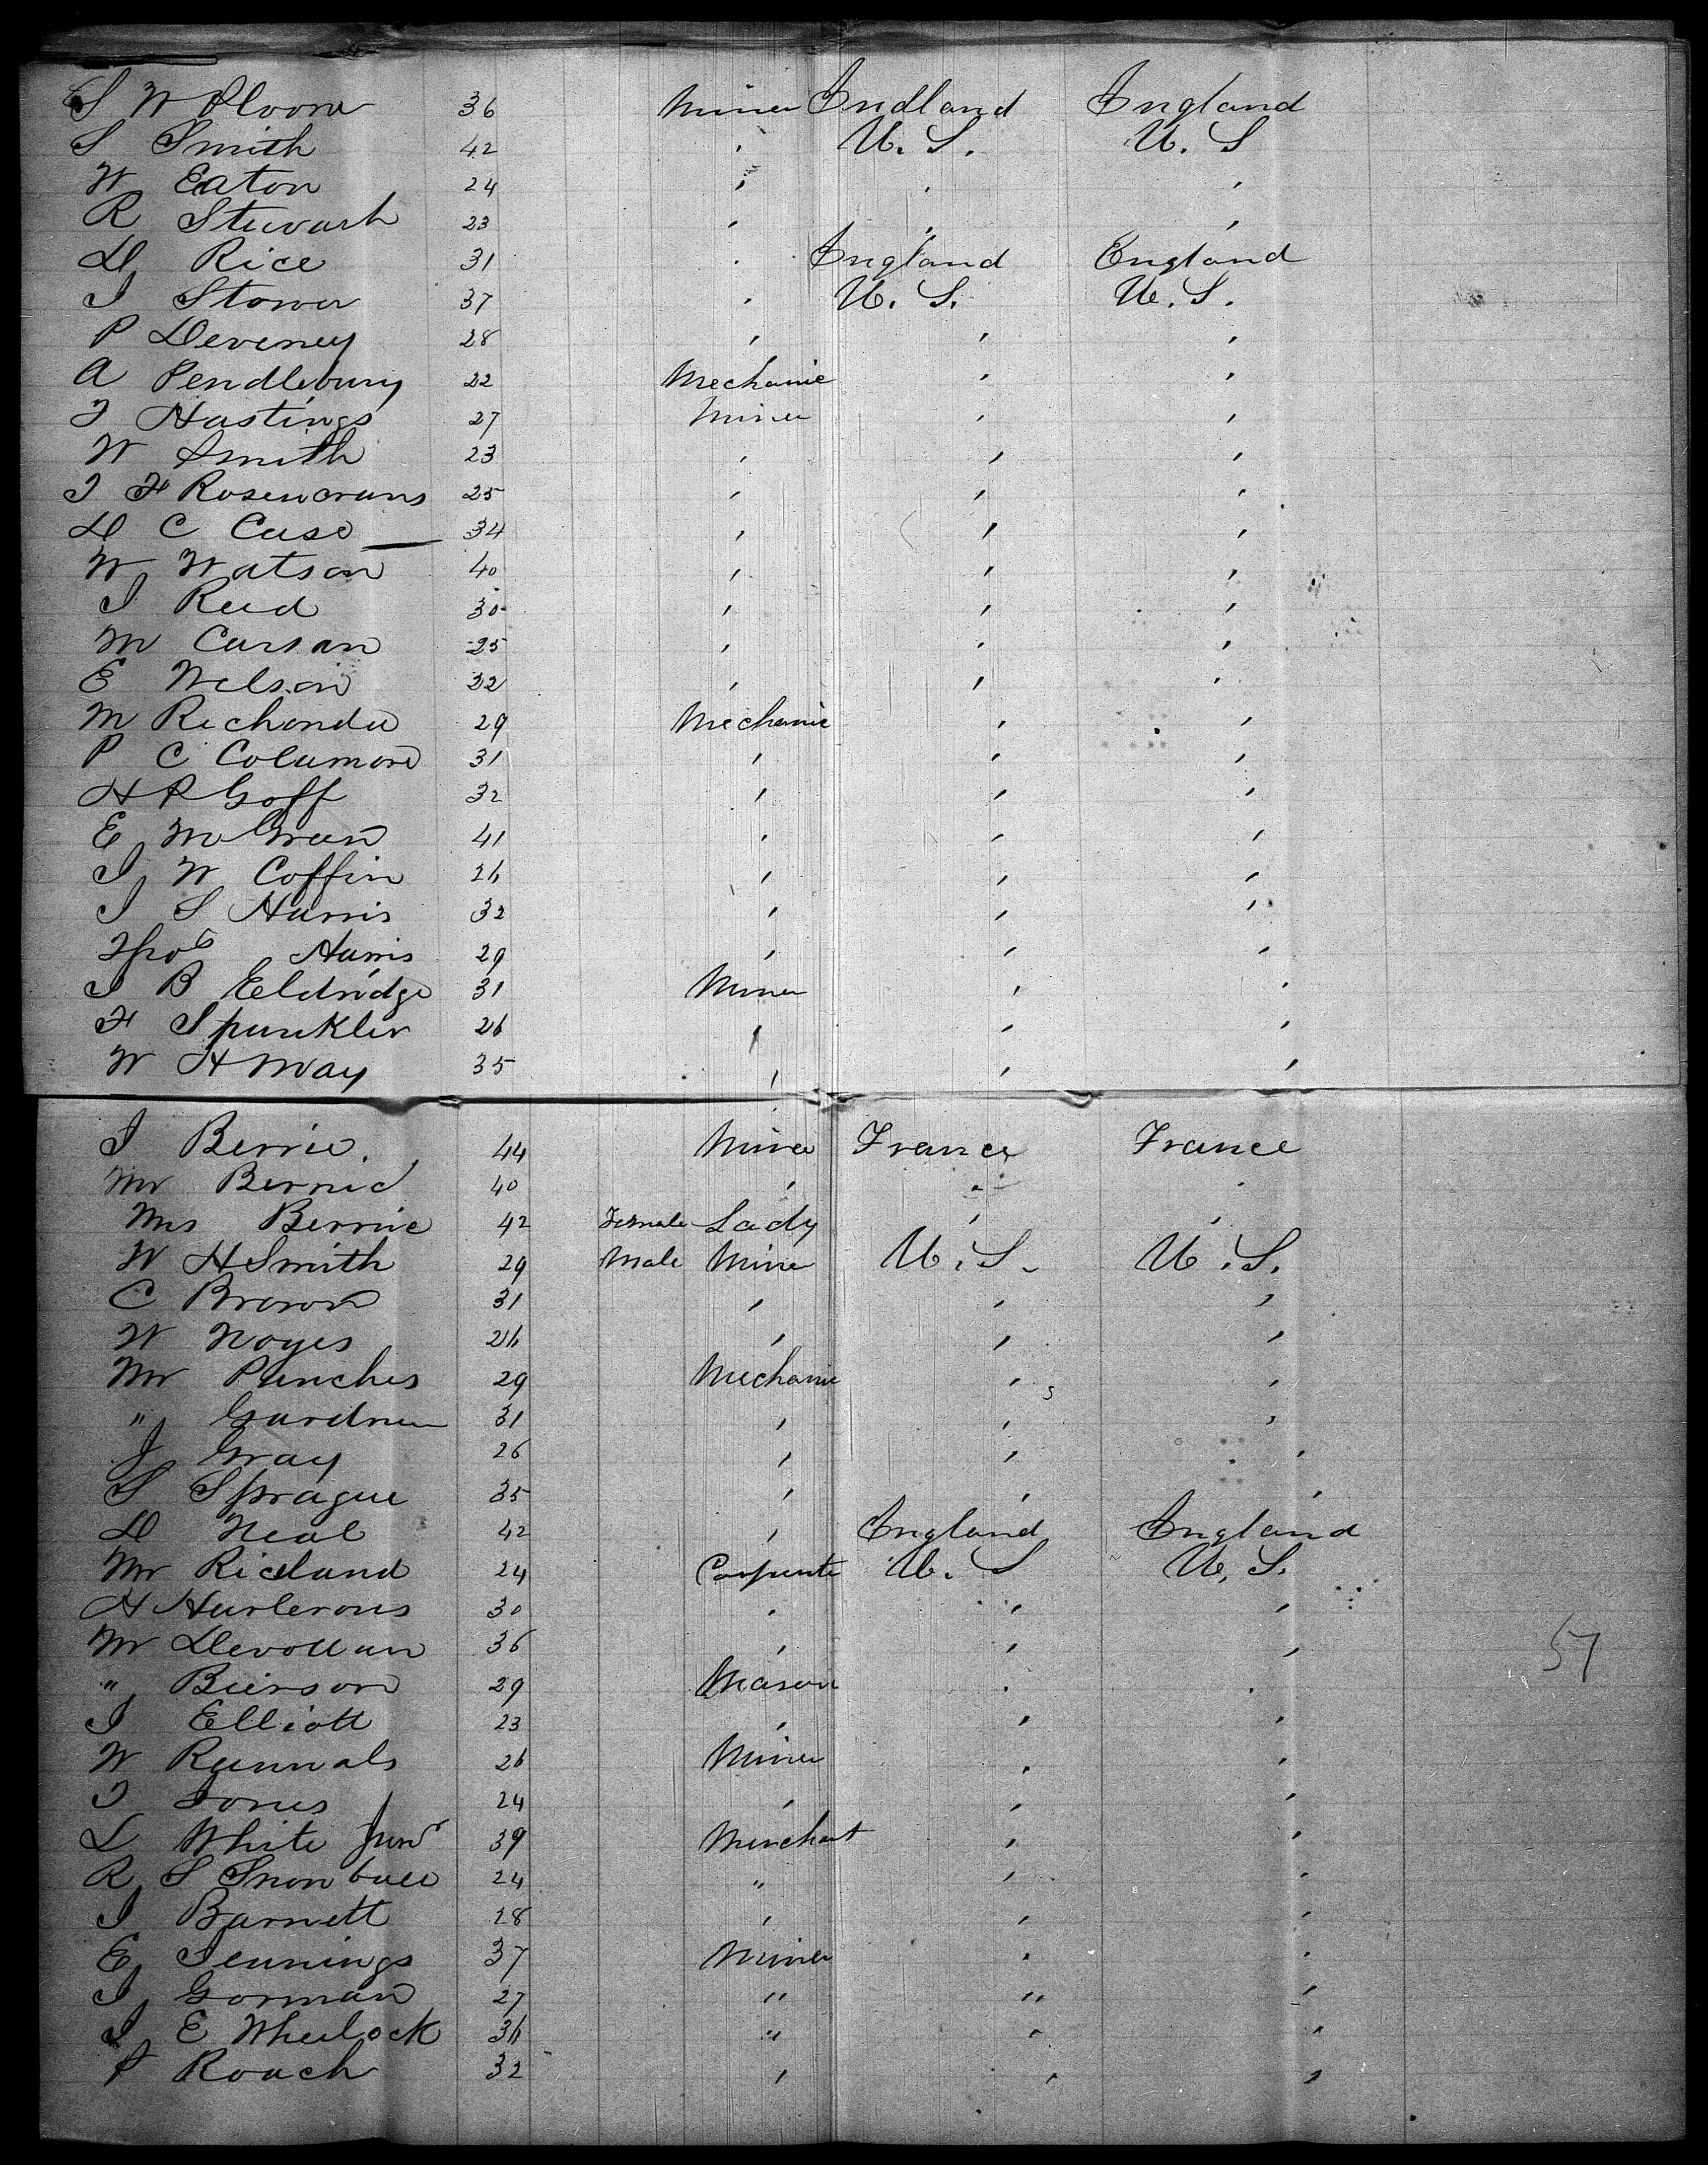 S W Sloone 36 Miner Indland England
S Smith 42 , U. S. U. S
W Eaton 24 , , ,
R Stewart 23 , , ,
D Rice 31 , England England
I Stower 37 , U. S. U. S.
P Deveney 28 , , ,
A Pendlebury 22 Mechanic , ,
T Hastings 27 Miner , ,
W Smith 23 , , ,
I H Rosencrans 25 , , ,
D C Case 34 , , ,
W Watson 40 , , ,
I Reed 30 , , ,
M Carson 25 , , ,
E Wilson 32 , , ,
M Richards 29 Mechanic , ,
P C Colamore 31 , , ,
H P Goff 32 , , ,
E McGraw 41 , , ,
I W Coffin 26 , , ,
I S Harris 32 , , ,
Thos Harris 29 , , ,
I B Eldridge 31 Miner , ,
F Spunkler 26 , , ,
W H May 35 , , ,
I Berrie 44 Miner France France
Mr Bernie 40 , , ,
Mrs Berrie 42 Female Lady , ,
W H Smith 29 Male Miner U. S. U. S.
C Brown 31 , , ,
W Noyes 26 , , ,
Mr Punches 29 Mechanic , ,
" Gardner 31 , , ,
J Gray 26 , , ,
S Sprague 35 , , ,
D Neal 42 , England England
Mr Ricland 24 Carpenter U. S U. S.
H Hurlerous 30 , , ,
Mr Devollan 36 , , ,
" Bierson 29 Mason , ,
I Elliott 23 , , ,
W Runnals 26 Miner , ,
T Jones 24 , , ,
L White Junr 39 Merchant , ,
R S Snowball 24 " , ,
I Barnett 28 , , ,
E Jennings 37 Miner , ,
I Gorman 27 " " ,
I E Wheelock 36 " , ,
P Roach 32 , , ,
57